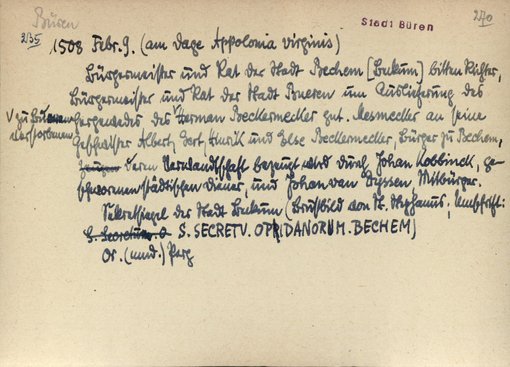 Büren
Stadt Büren
270
235
1508 Febr. 9. (am dage Appolonia virginis)
Bürgermeister und Rat der Stadt Bechem [Beckum] bitten Richter,
Bürgermeister und Rat der Stadt Bueren um Auslieferung des
V zu Büren verstorbenen
Hergewedes des Herman Beckermecker gnt. Mesmecker an seine
Geschwister Albert, Gert, Hinrik und Else Beckermecker, Bürger zu Bechem,
deren Verwandtschaft bezeugt wird durch Johan Kobbinck, ge-
schworenen städtischen Diener, und Johan van Byssen, Mitbürger.
Sekretsiegel der Stadt Beckum (Brustbild von St. Stephanus, Umschrift:
S. Secretum. O S. SECRETV. OPIDANORUM. BECHEM)
Or. (mnd.) Perg